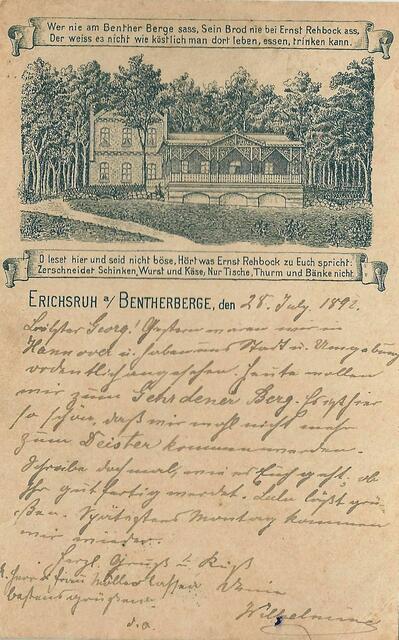 Wer nie am Benther Berge sass, Sein Brod nie bei Ernst Rehbock ass,
Der weiss es nicht wie köstlich man dort leben, essen, trinken kann.
O leset hier und seid nicht böse, Hört was Ernst Rehbock zu Euch spricht:
Zerschneidet Schinken, Wurst und Käse, Nur Tische, Thurm und Bänke nicht.
ERICHSRUH a/ BENTHERBERGE, den 28. July 1892.
Liebster Georg! Gestern waren wir in
Hannover u. haben uns Stadt u. Umgebung
ordentlich angesehen. Heute wollen
wir zum Gehrdener Berg. Es ist hier
so schön, daß wir wohl nicht mehr
zum Deister kommen werden.
Schreibe doch mal, wie es Euch geht, ob
Ihr gut fertig werdet. Lulu läßt grü-
ßen. Spätestens Montag kommen
wir wieder.
Herzl. Gruß u. Kuß
Herr u. Frau Möller lassen Deine
bestens grüßen. Wilhelmine
d. O.